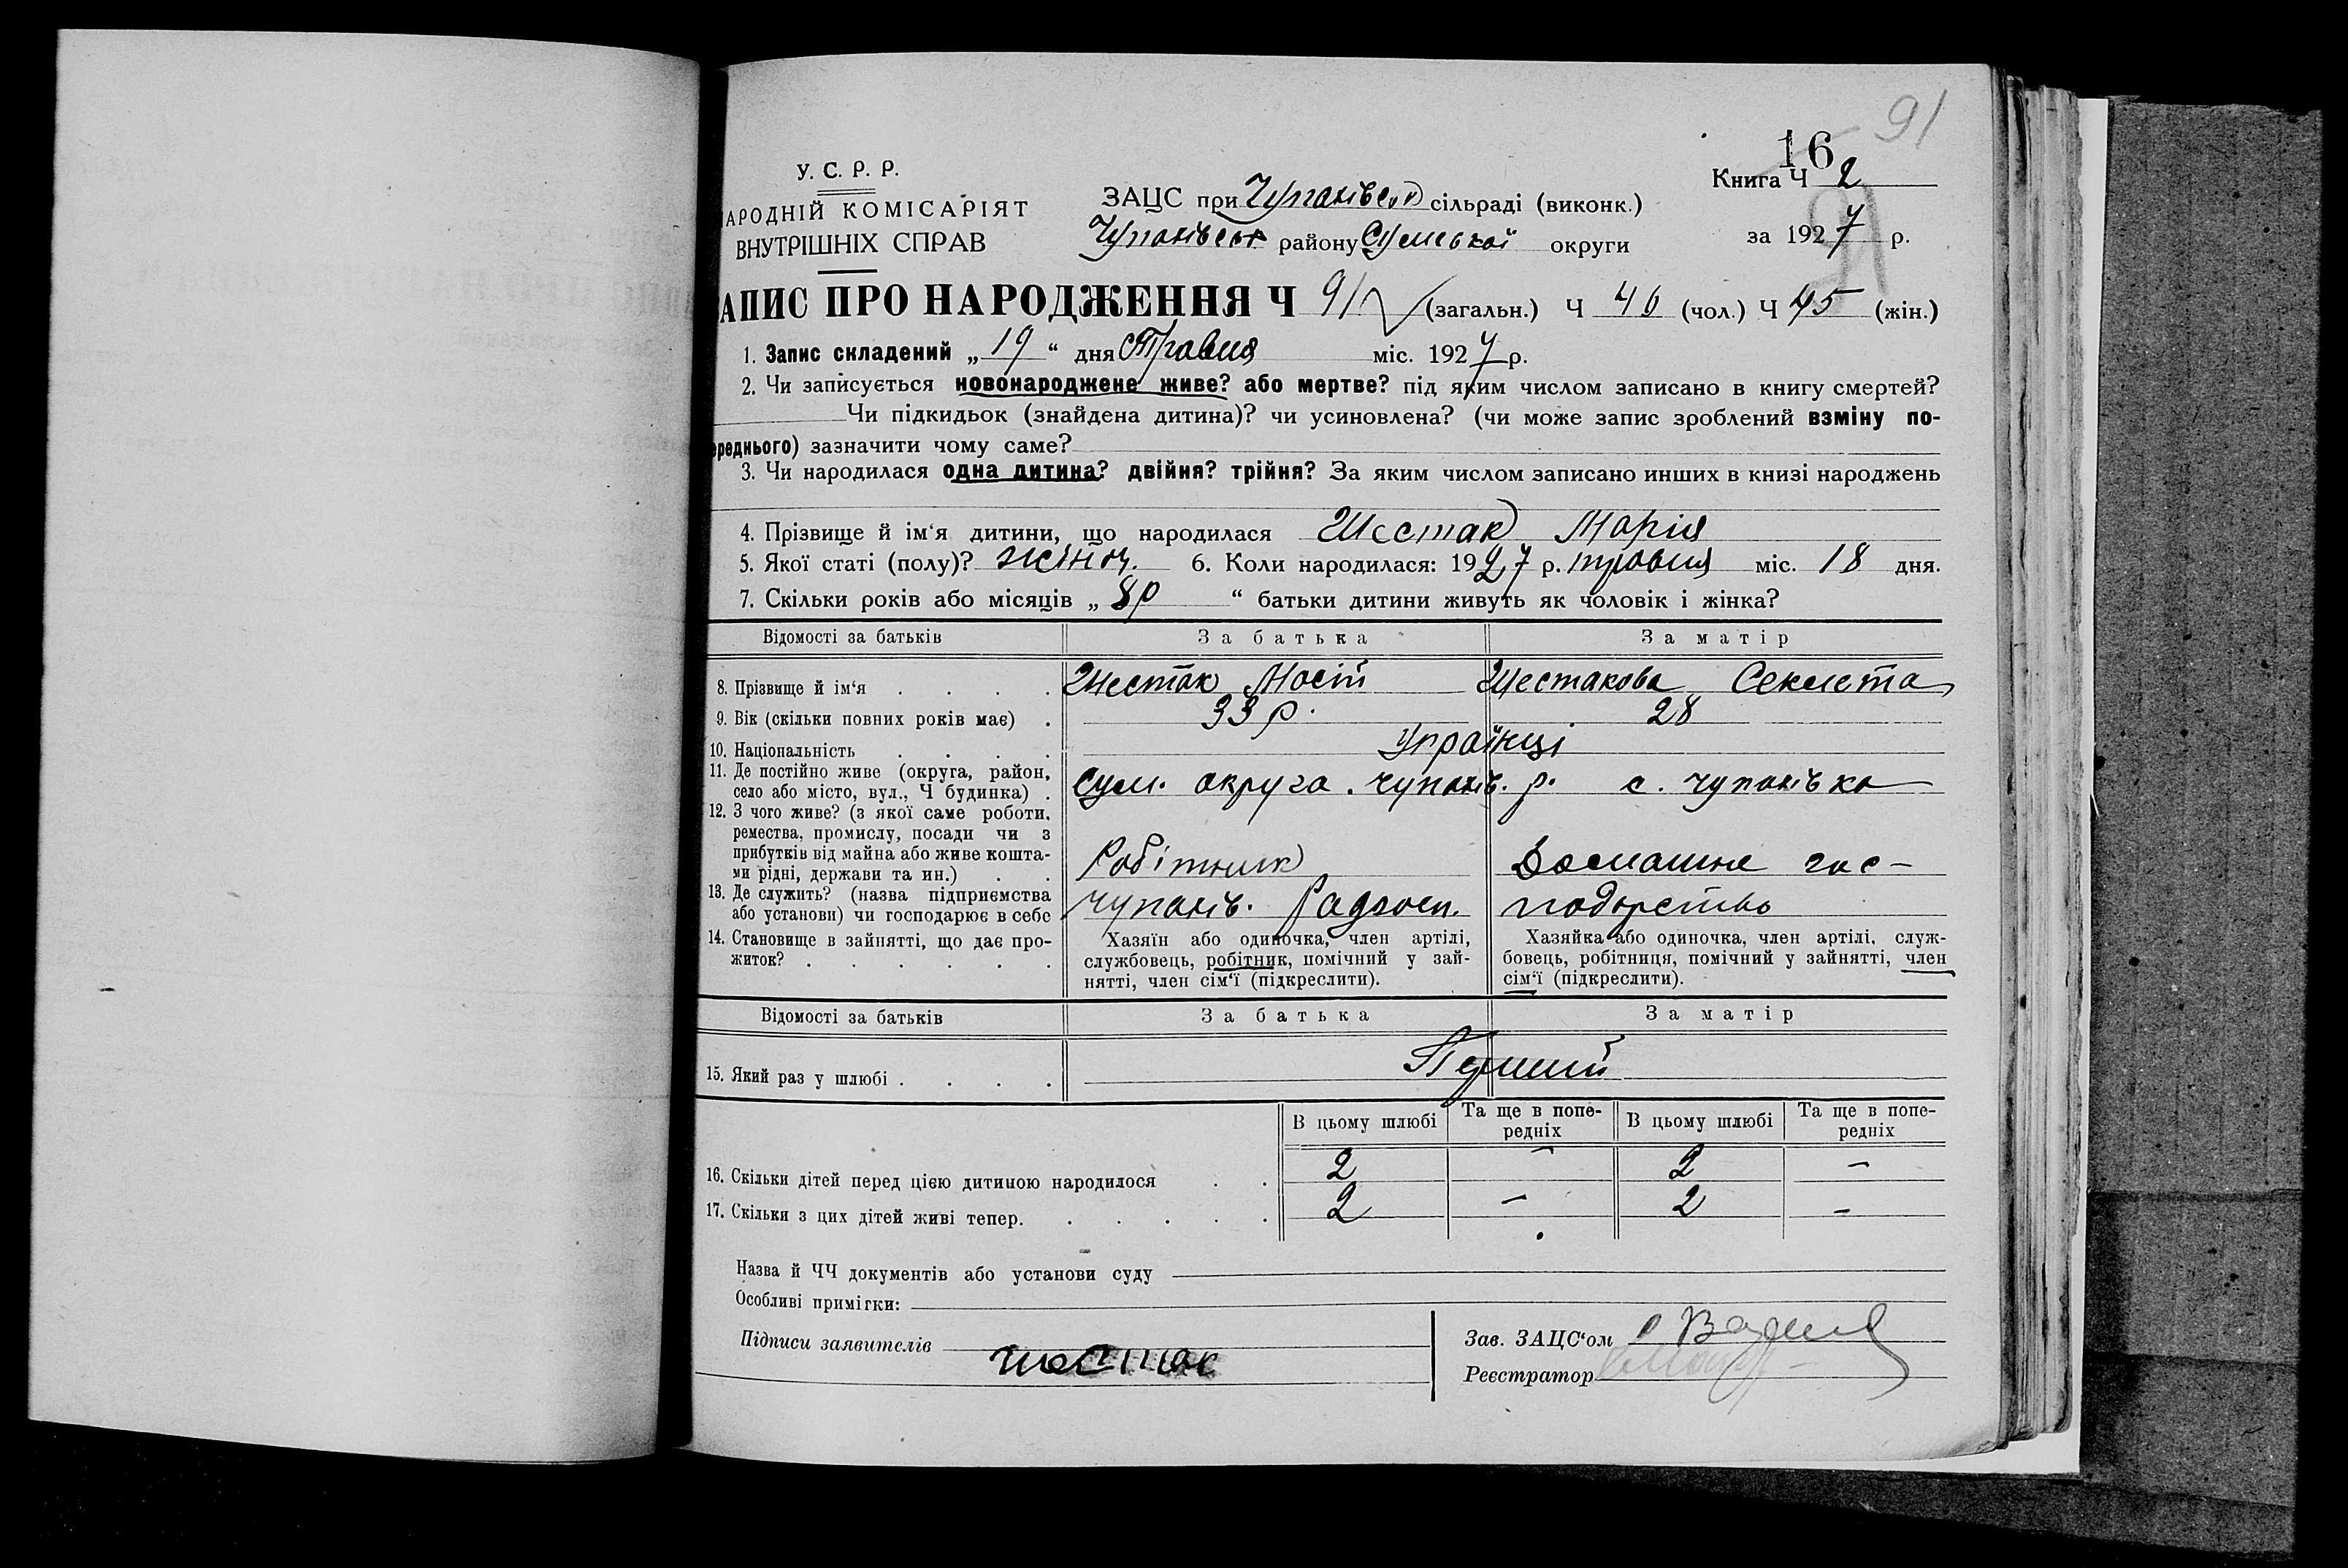 91
16
У. С. Р. Р.
Книга Ч 2
АРОДНІЙ КОМІСАРІЯТ
ВНУТРІШНІХ СПРАВ
ЗАЦС при сільраді (виконк.)
району Сумської округи
за 1927 р.
АПИС ПРО НАРОДЖЕННЯ Ч 91 (загальн.) Ч 46 (чол.) Ч 45 (жін.)
1. Запис складений „19“ дня Травня міс. 1927 р.
2. Чи записується новонароджене живе? або мертве? під яким числом записано в книгу смертей?
Чи підкидьок (знайдена дитина)? чи усиновлена? (чи може запис зроблений взміну по-
ереднього) зазначити чому саме?
3. Чи народилася одна дитина? двійня? трійня? За яким числом записано инших в книзі народжень
4. Прізвище й ім‘я дитини, що народилася Шестак Марія
5. Якої статі (полу)? жіноч. 6. Коли народилася: 1927 р. травня міс. 18 дня.
7. Скільки років або місяців „8р“ батьки дитини живуть як чоловік і жінка?
Відомості за батьків За батька За матір
8. Прізвище й ім‘я . . . . Шестак Мосій Шестакова Секлета
9. Вік (скільки повних років має) . 33 р. 28
10. Національність . . . . Українці
11. Де постійно живе (округа, район,
село або місто, вул., Ч будинка) . Сум. округа. чупахів. р. с. чупахівка
12. З чого живе? (з якої саме роботи,
ремества, промислу, посади чи з
прибутків від майна або живе кошта-
ми рідні, держави та ин.) . . Робітник Домашнє гос-
13. Де служить? (назва підприємства
або установи) чи господарює в себе чупахів. Радгосп. подарство
14. Становище в зайнятті, що дає про-
житок? . . . . . .
Хазяїн або одиночка, член артілі,
службовець, робітник, помічний у зай-
нятті, член сім‘ї (підкреслити).
Хазяйка або одиночка, член артілі, служ-
бовець, робітниця, помічний у зайнятті, член
сім‘ї (підкреслити).
Відомості за батьків За батька За матір
15. Який раз у шлюбі . . . . Перший
В цьому шлюбі Та ще в попе-
редніх В цьому шлюбі Та ще в попе-
редніх
16. Скільки дітей перед цією дитиною народилося . . 2 – 2 –
17. Скільки з цих дітей живі тепер. . . . . . 2 – 2 –
Назва й ЧЧ документів або установи суду
Особливі примітки:
Підписи заявителів шестак
Зав. ЗАЦС‘ом
Реєстратор